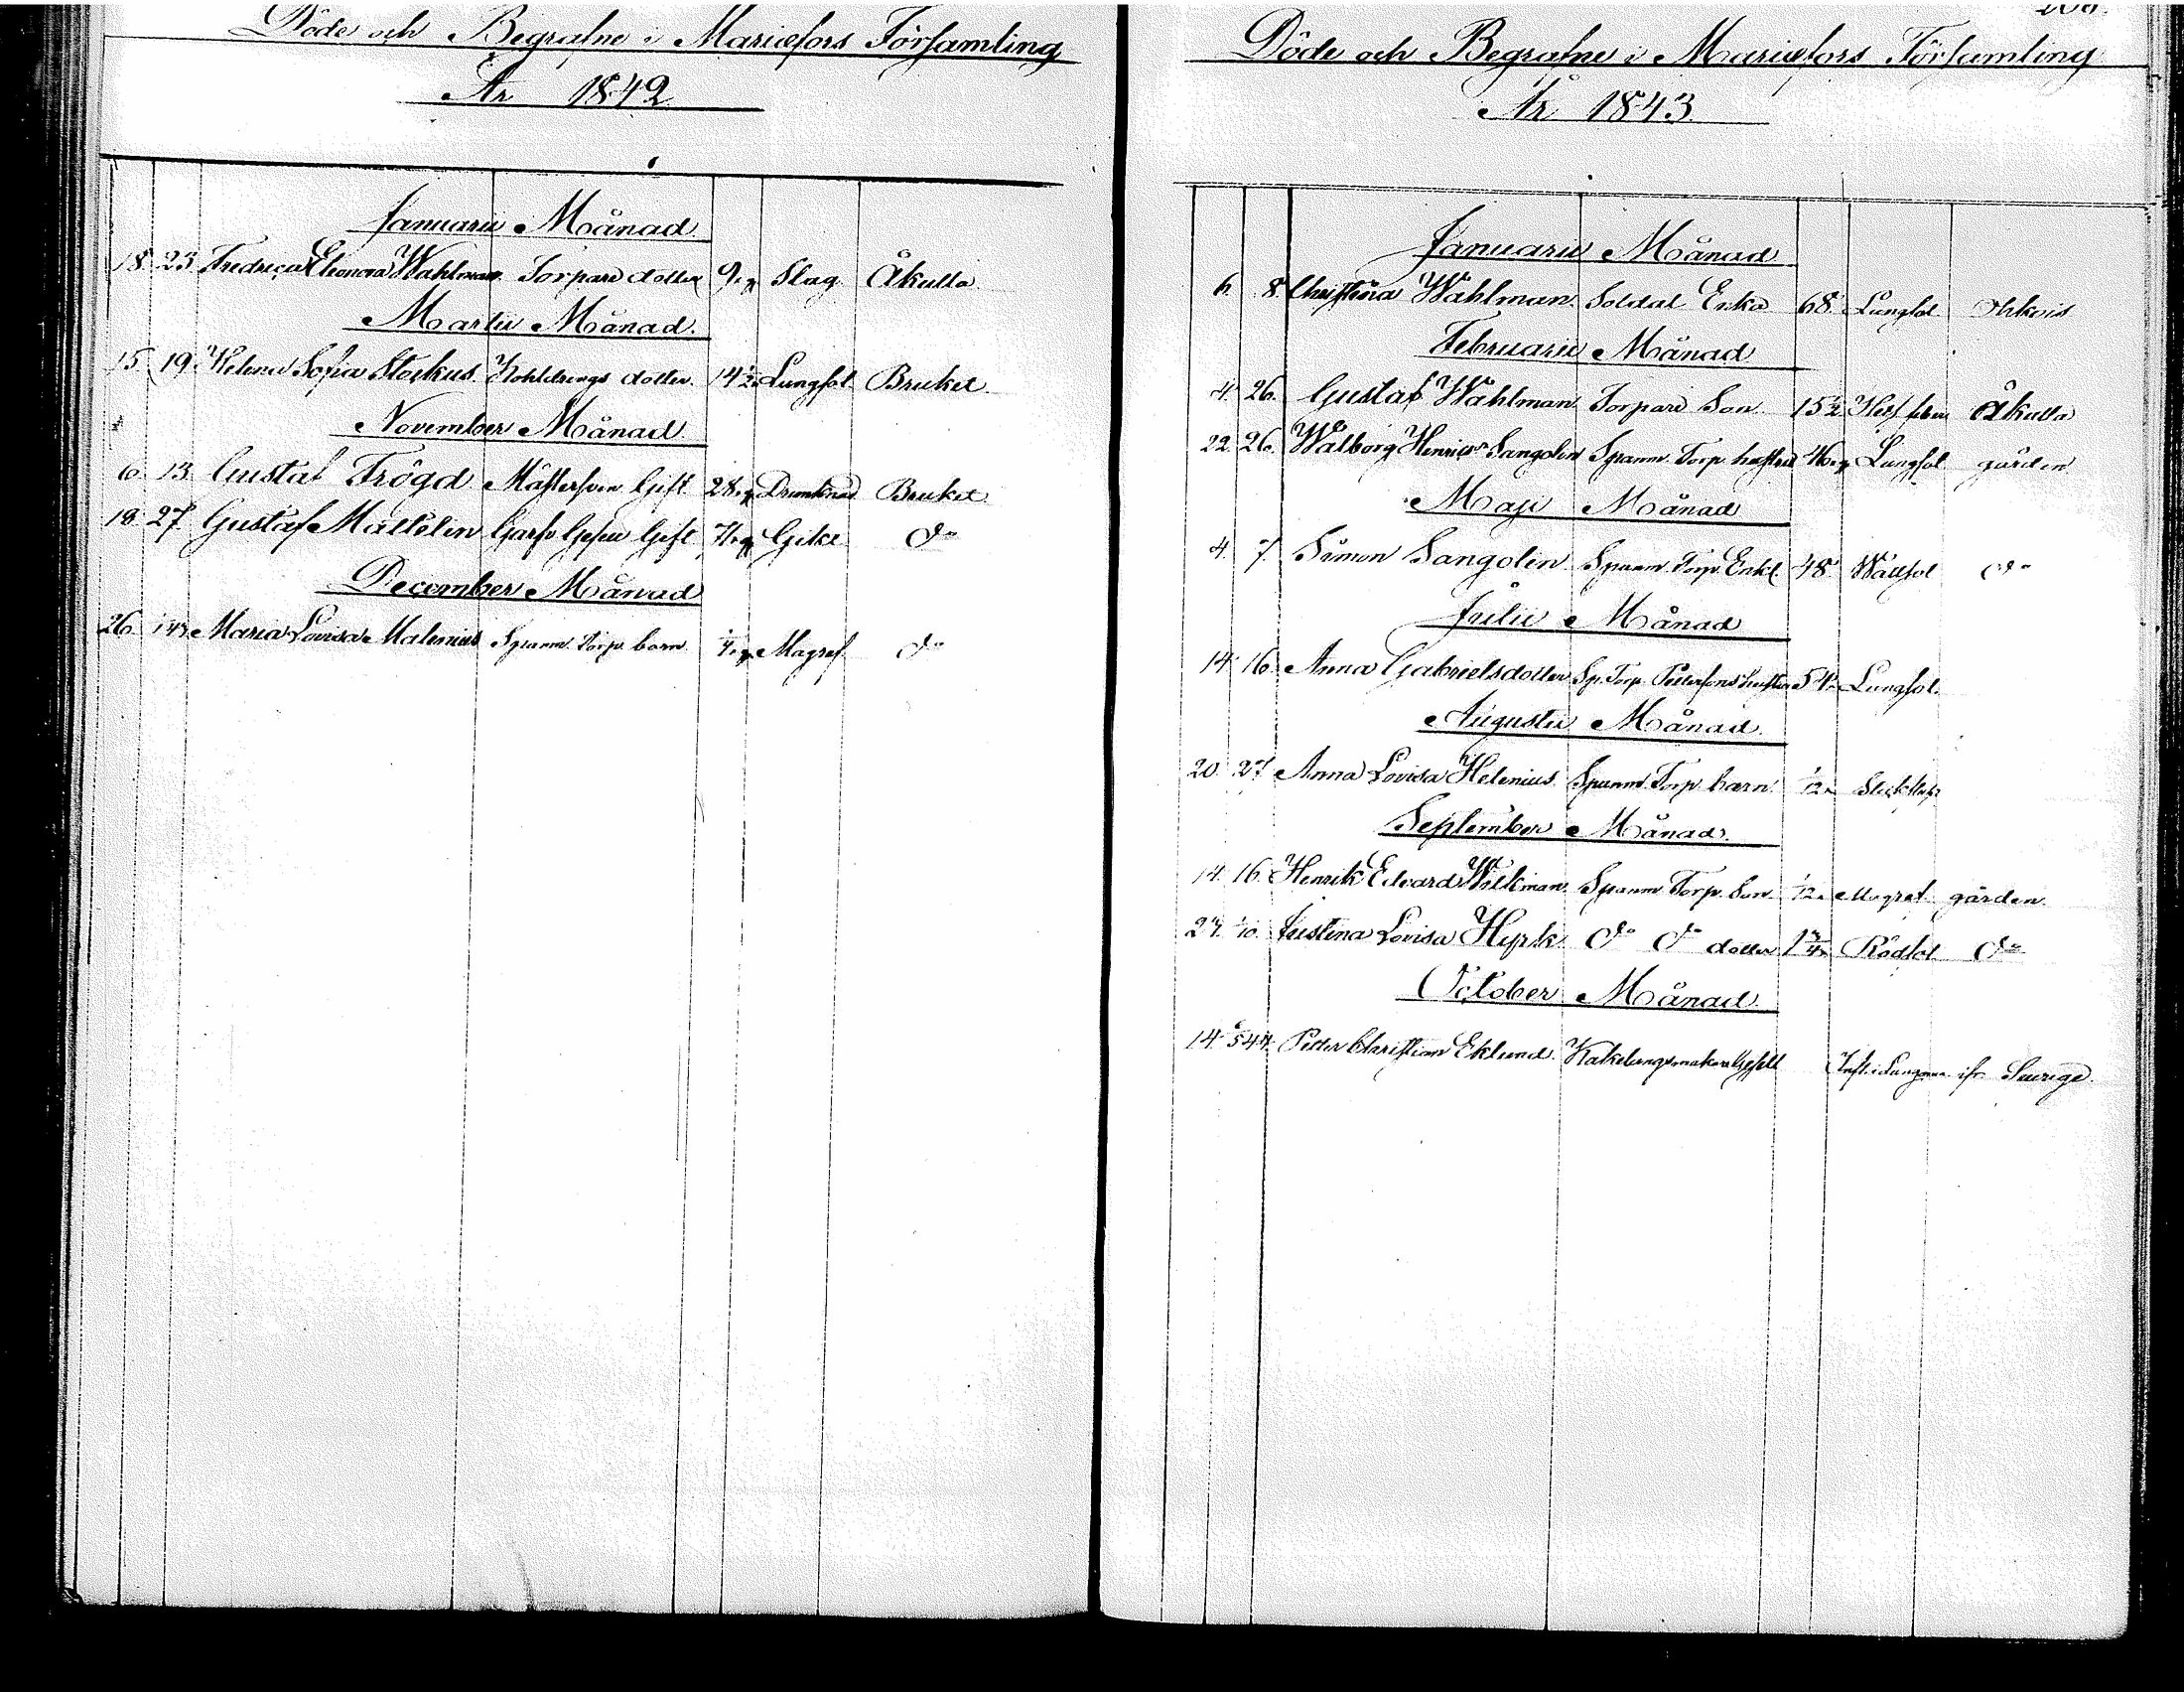 Döde och Begrafne i Mariæfors Församling
År 1842
Januarii Månad
18. 23. Fredrica Eleonora Wahlman Torpare dotter 9 Slag Åkulla
Martii Månad.
15. 19. Helena Sofia Stockus Kohldrengs dotter. 14½ Lungsot Bruket
November Månad
6. 13. Gustaf Frögd Mästersven Gift 28 Drunknad Bruket
18. 27. Gustaf Mattelin Gift 71 Gikt do
December Månad
26. Maria Lovisa Malenius Spanm. Torp. barn ¼ Magref. do
208.
Döde och Begrafne i Mariæfors Församling
År 1843
Januarii Månad
6. 8. Christina Wahlman. Soldat Enka 68. Lungsot
Februarii Månad
4. 26. Gustaf Wahlman Torpare Son. 15½ Åkulla
22. 26. Walborg Henricsdr Sangolin Spanm. Torp. hustru 46 Lungsot gården
Maji Månad
4. 7. Simon Sangolin Spanm. Torp. Enkl. 48. Wattsot do
Julii Månad
14. 16. Anna Gabrielsdotter Sp. Torp. Pettersons hustru 54. Lungsot.
Augustii Månad.
20. 27. Anna Lovisa Helenius Spanm. Torp. barn. 1/12 Slick
September Månad.
14. 16. Henrik Edvard Wilkman Spanm. Torp. Son. 1/12 Magref gården.
27. 1/10. Justina Lovisa Hyrk do do dotter 1¾ Rödsot do
October Månad
14. Petter Christian Eklund. Kakelugnsmakare Gesäll ifr. Sverige.